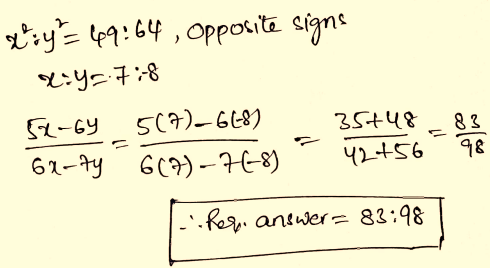 x²:y² = 49:64, opposite signs
x:y = 7:-8
5x-6y/6x-7y = 5(7)-6(-8)/6(7)-7(-8) = 35+48/42+56 = 83/98
∴ Req. answer = 83:98